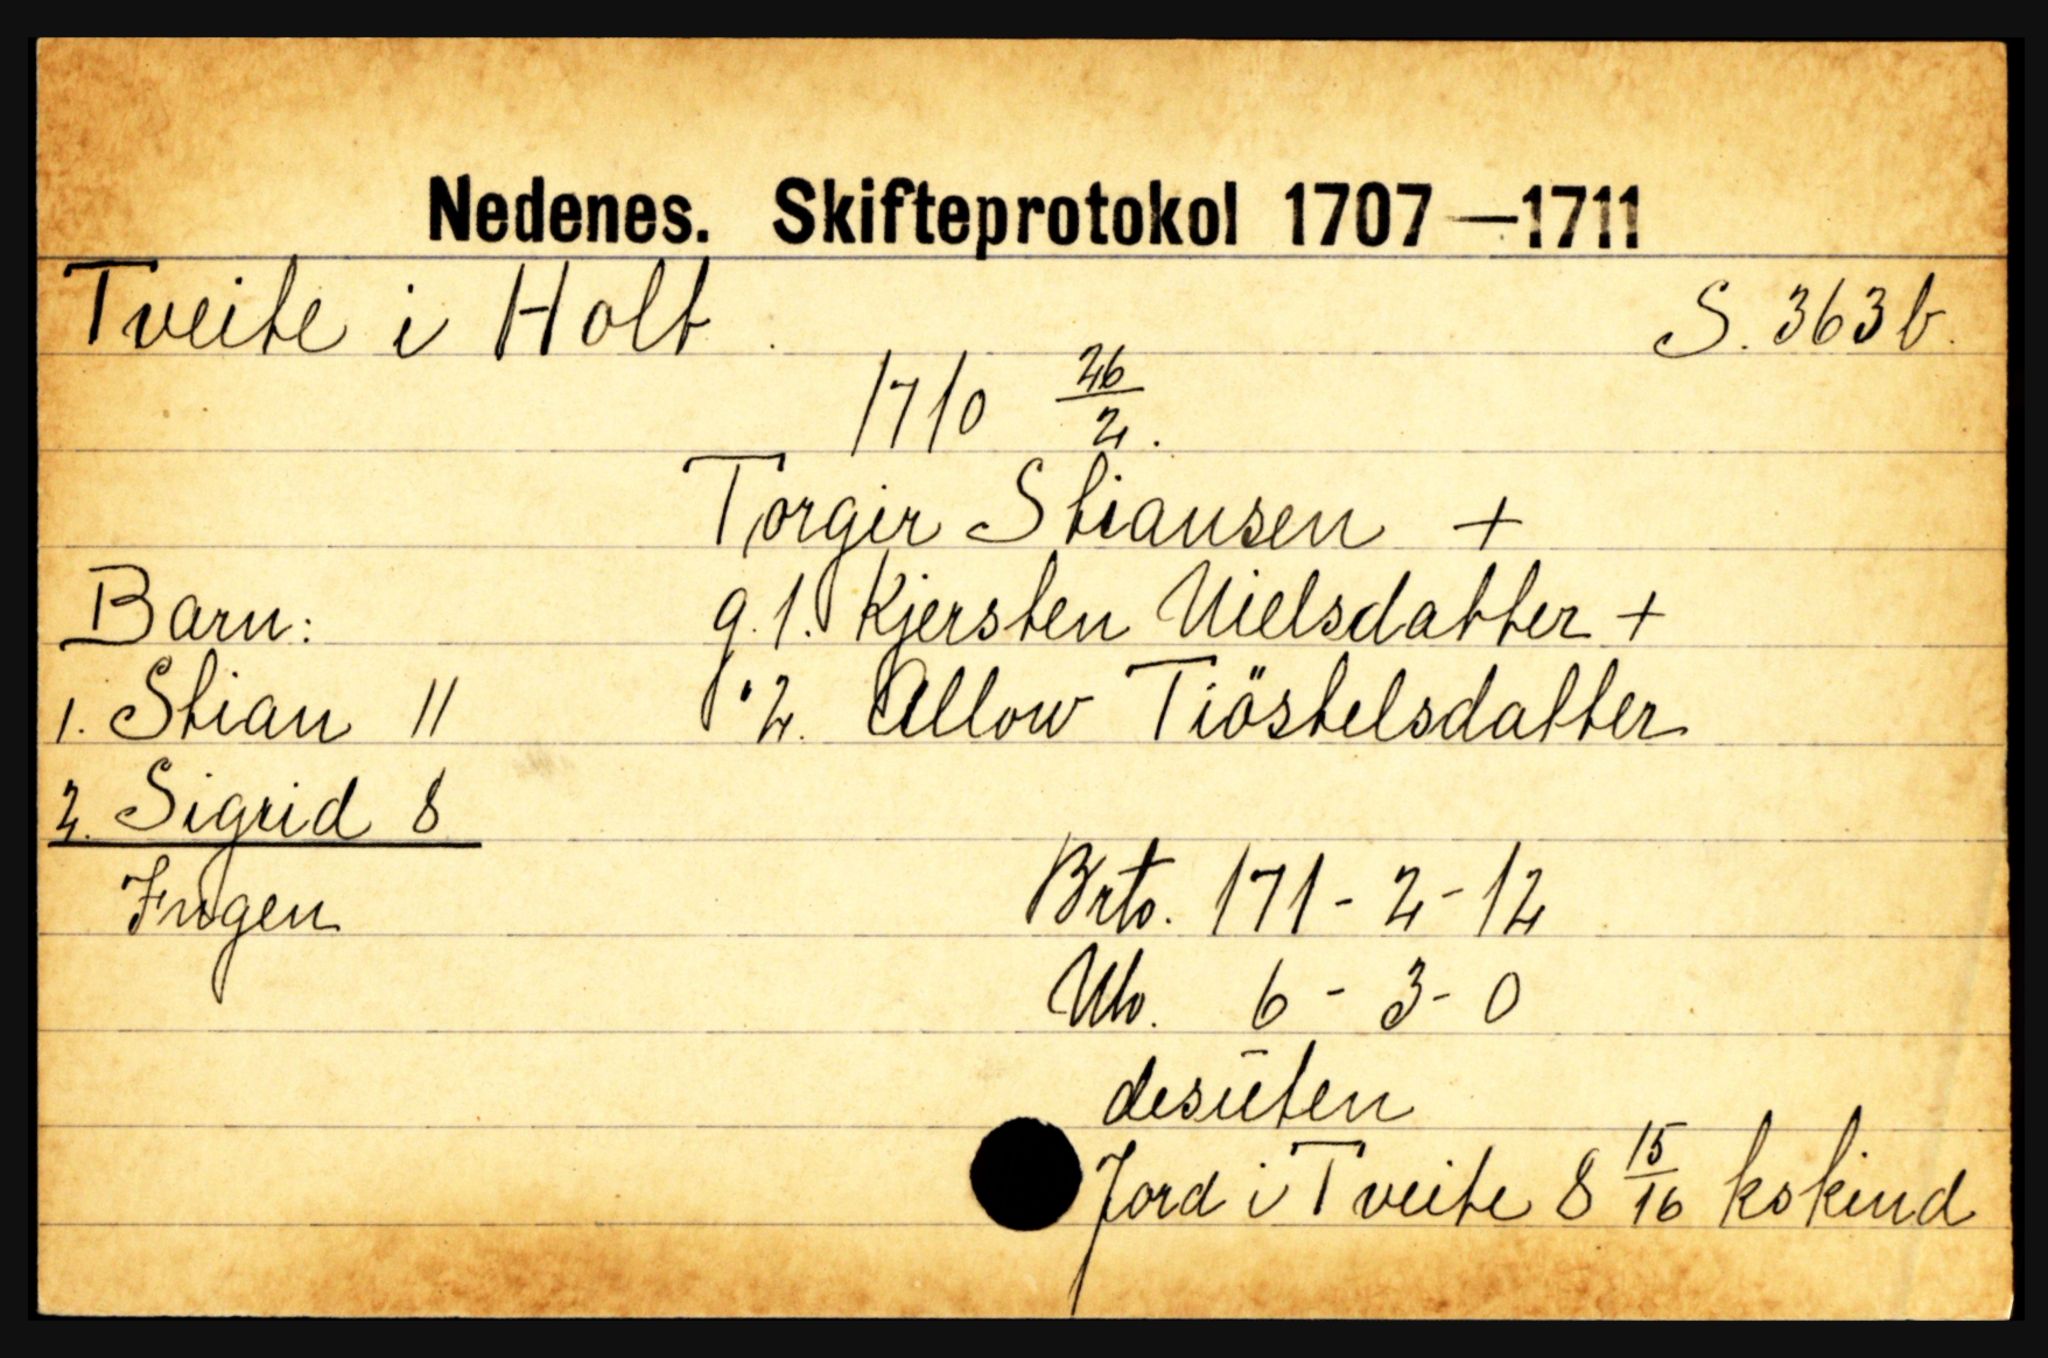 Nedenes. Skifteprotokol 1707—1711
Tveite i Holt. S. 363 b.
1710 26/2.
Torgir Stiansen +
Barn: g. 1. Kjersten Nielsdatter +
1. Stian 11 " 2. Allow Tiöstelsdatter
2. Sigrid 8
Ingen Brto. 171 - 2 - 12
Nto. 6 - 3 - 0
desuten
Jord i Tveite 8 15/16 kskind